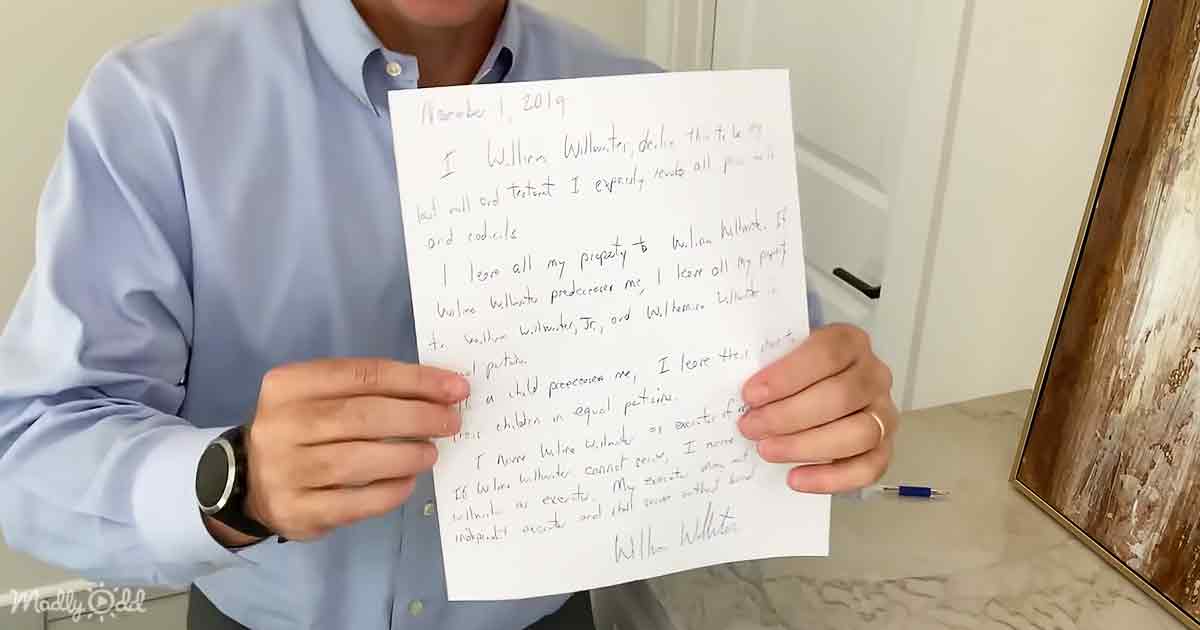 November 1, 2019
I William Willwriter, declare this to be my
last will and testament I expressly revoke all prior wills
and codicils
I leave all my property to Wilma Willwriter. If
Wilma Willwriter predeceases me, I leave all my property
to William Willwriter, Jr., and Wilhemina Willwriter in
equal portions.
If a child predeceases me, I leave their share to
their children in equal portions.
I name Wilma Willwriter as executor of my
If Wilma Willwriter cannot serve, I name
Willwriter as executor. My executor may act
independent executor and shall serve without bond
William Willwriter
Madly Odd